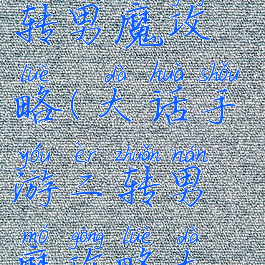 转男魔攻
lüè dà huà shǒu
略(大话手
yóu èr zhuǎn nán
游二转男
mó gōng lüè dà
魔攻略大